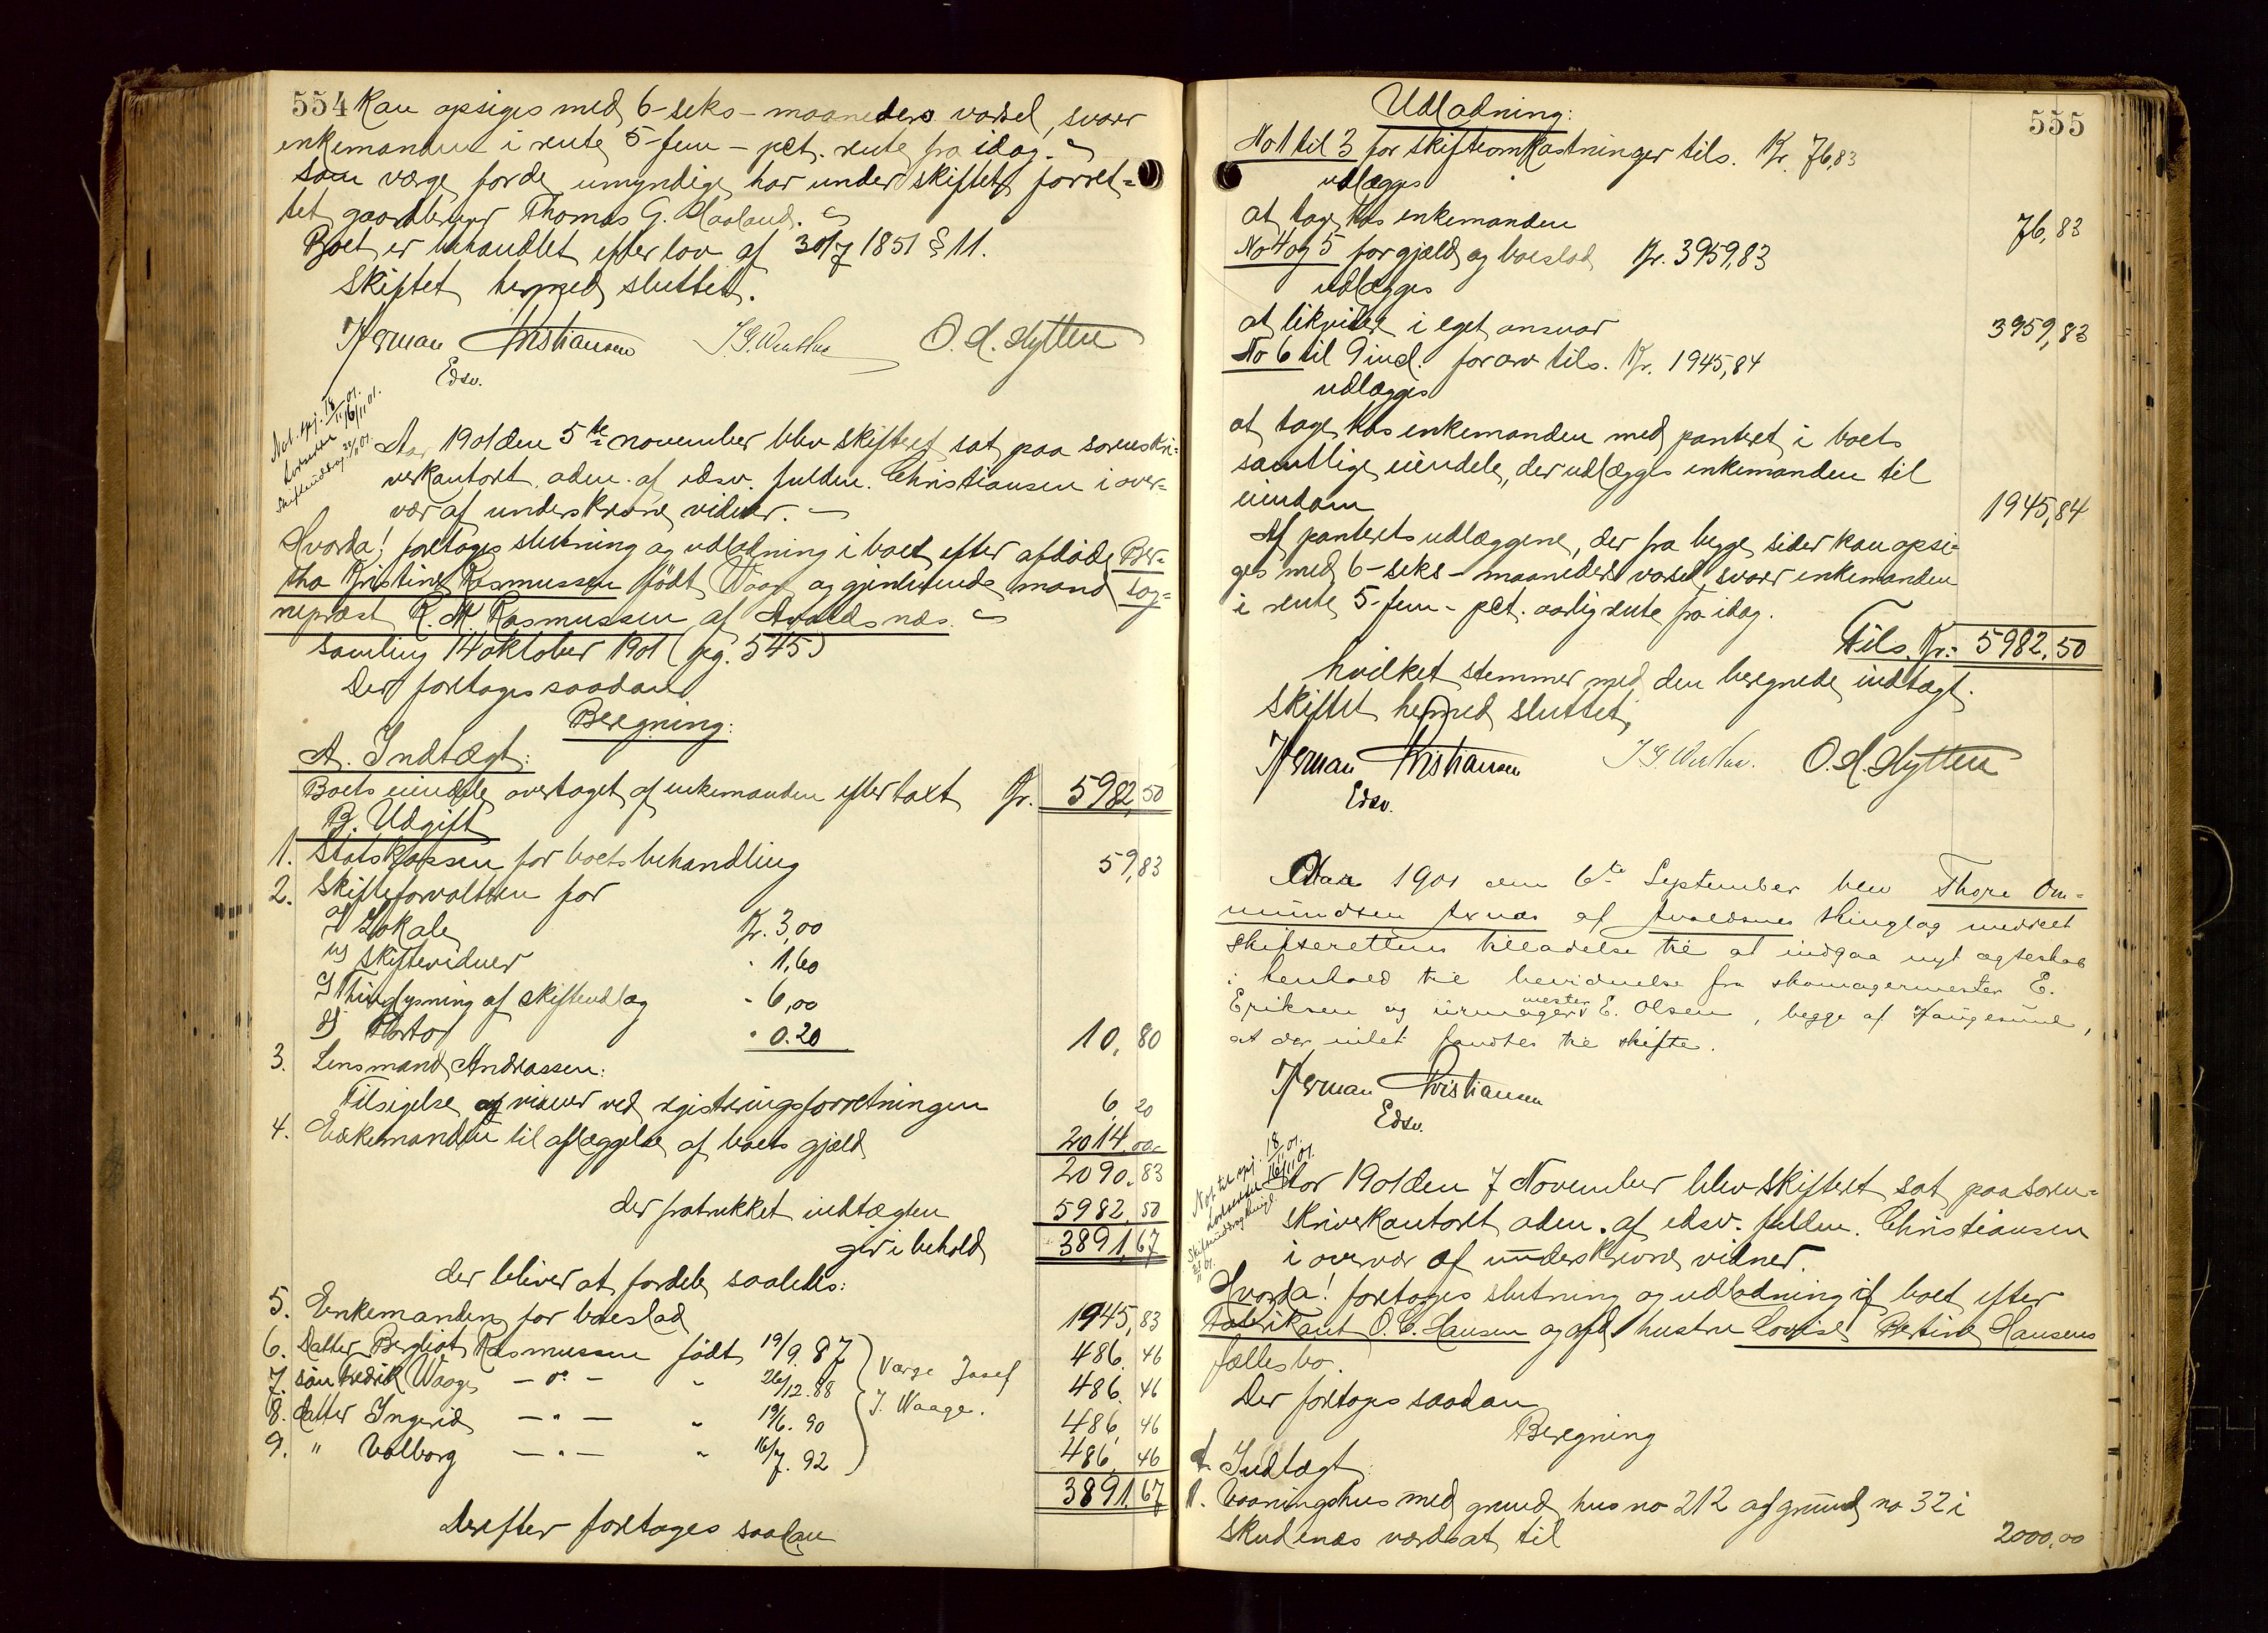 554 Kan opsiges med 6-seks-maaneders varsel, svarer
enkemanden i rente 5-fem-pct. rente fra idag.
Som værge for de umyndige har under skiftet forret-
tet gaardbruger Thomas G. Haaland.
Boet er behandlet efter lov af 30/7 1851 § 11.
Skiftet hermed sluttet.
Herman Christiansen O. H. Hytten
Edsv.
Not. opj. 18/11 01.
16/11 01.
Skifteuddrag 21/11 01.
Aar 1901 den 5te november blev skifteret sat paa sorenskri-
verkantoret, adm. af edsv. fuldm. Christiansen i over-
vær af underskrevne vidner.
Hvorda! foretoges slutning og udlodning i boet efter afdøde Ber-
tha Kristine Rasmussen født Waage og gjenlevende mand sog-
neprest R. M. Rasmussen af Avaldsnæs.
Samling 14 oktober 1901 (pg. 545)
Der foretoges saadan
Beregning:
A. Indtægt:
Boets eiendele overtaget af enkemanden efter taxt Kr. 5982,50
B. Udgift
1. Statskassen for boets behandling 59,83
2. Skifteforvalteren for
a) Lokale Kr. 3,00
b) Skiftevidner " 1,60
c) Thinglysning af skifteudlæg " 6,00
d) Porto " 0.20 10,80
3. Lensmand Andreassen:
Tilsigelse af vidner ved registreringsforretningen 6,20
4. Enkemanden til aflæggelse af boets gjæld 2014,00
2090,83
der fratrukket indtægten 5982,50
giver i behold 3891,67
der bliver at fordele saaledes:
5. Enkemanden for boeslod 1945,83
6. Datter Bergliot Rasmussen født 19/9. 87 486,46
7. Søn Fredrik Waage — do — " 26/12. 88 Værge Josef 486,46
8. Datter Ingerid — " — " 19/6. 90 J. Waage. 486,46
9. " Valborg — " — " 16/7. 92 486,46
3891,67
Derefter foretoges saadan
555
Udlodning:
No 1 til 3 for skifteomkostninger tils. Kr. 76,83
udlægges
at tage hos enkemanden 76,83
No 4 og 5 for gjæld og boeslod Kr. 3959,83
udlægges
at likvidere i eget ansvar 3959,83
No 6 til 9 incl. for arv tils. Kr. 1945,84
udlægges
at tage hos enkemanden med panteret i boets
samtlige eiendele, der udlægges enkemanden til
eiendom 1945,84
Af panteretsudlæggene, der fra begge sider kan opsi-
ges med 6-seks-maaneders varsel, svarer enkemanden
i rente 5-fem-pct. aarlig rente fra idag.
Tils. Kr. 5982,50
hvilket stemmer med den beregnede indtægt.
Skiftet hermed sluttet.
Herman Christiansen O. H. Hytten
Edsv.
Aar 1901 den 6te September blev Thore Om-
mundsen Axnæs af Avaldsnes thinglag meddelt
skifterettens tilladelse til at indgaa nyt ægteskab
i henhold til bevidnelse fra skomagermester E.
Eriksen og urmagermester E. Olsen, begge af Haugesund,
at der intet fandtes til skifte.
Herman Christiansen
Edsv.
Not. til opj. 18/11 01.
16/11 01.
Skifteuddrag
21/11 01.
Aar 1901 den 7 November blev skifteret sat paa soren-
skriverkantoret, adm. af edsv. fuldm. Christiansen
i overvær af underskrevne vidner.
Hvorda! foretoges slutning og udlodning i boet efter
Fabrikant O. C. Hansen og afd. hustru Lovise Bertine Hansens
fællesbo.
Der foretoges saadan
Beregning
A. Indtægt:
1. Vaaningshus med grund, hus no 212 og grund no 32 i
Skudenæs værdsat til 2000,00